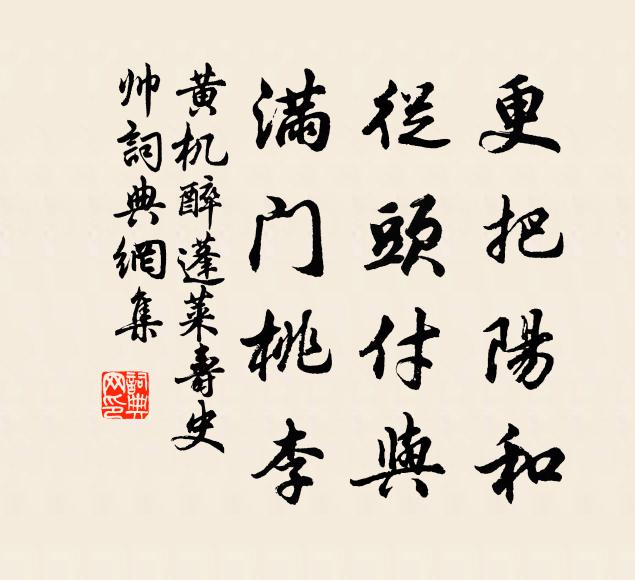 更把陽和
從頭付與
滿門桃李
黃机醉蓬萊壽史
帅詞典網集
詞典
网印